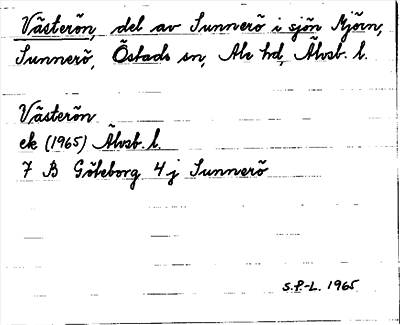 Västerön, del av Sunnerö i sjön Mjörn,
Sunnerö, Östads sn, Ale hd, Älvsb. l.
Västerön
ek (1965) Älvsb. l.
7 B Göteborg 4 j Sunnerö
S.P-L. 1965